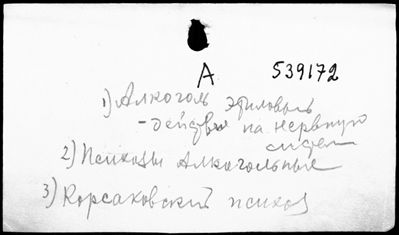 А 539172
1) Алкоголь этиловый
- действие на нервную
систем
2) Психозы алкогольные
3) Корсаковский психоз